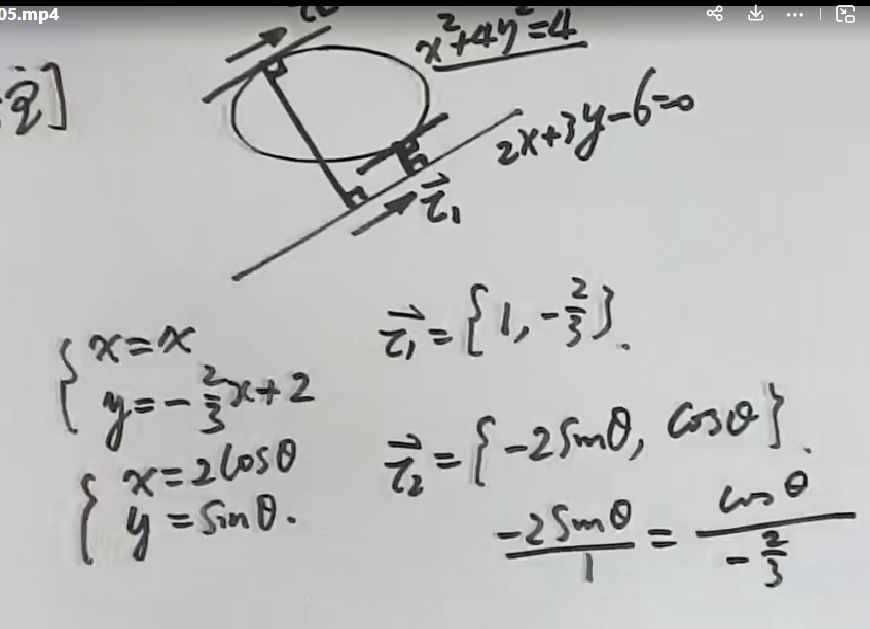 05.mp4
x²+4y²=4
2x+3y-6=0
τ⃗₁
{ x=x
y=-2/3x+2
τ⃗₁={1,-2/3}.
{ x=2cosθ
y=sinθ.
τ⃗₂={-2sinθ, cosθ}.
-2sinθ/1=cosθ/-2/3